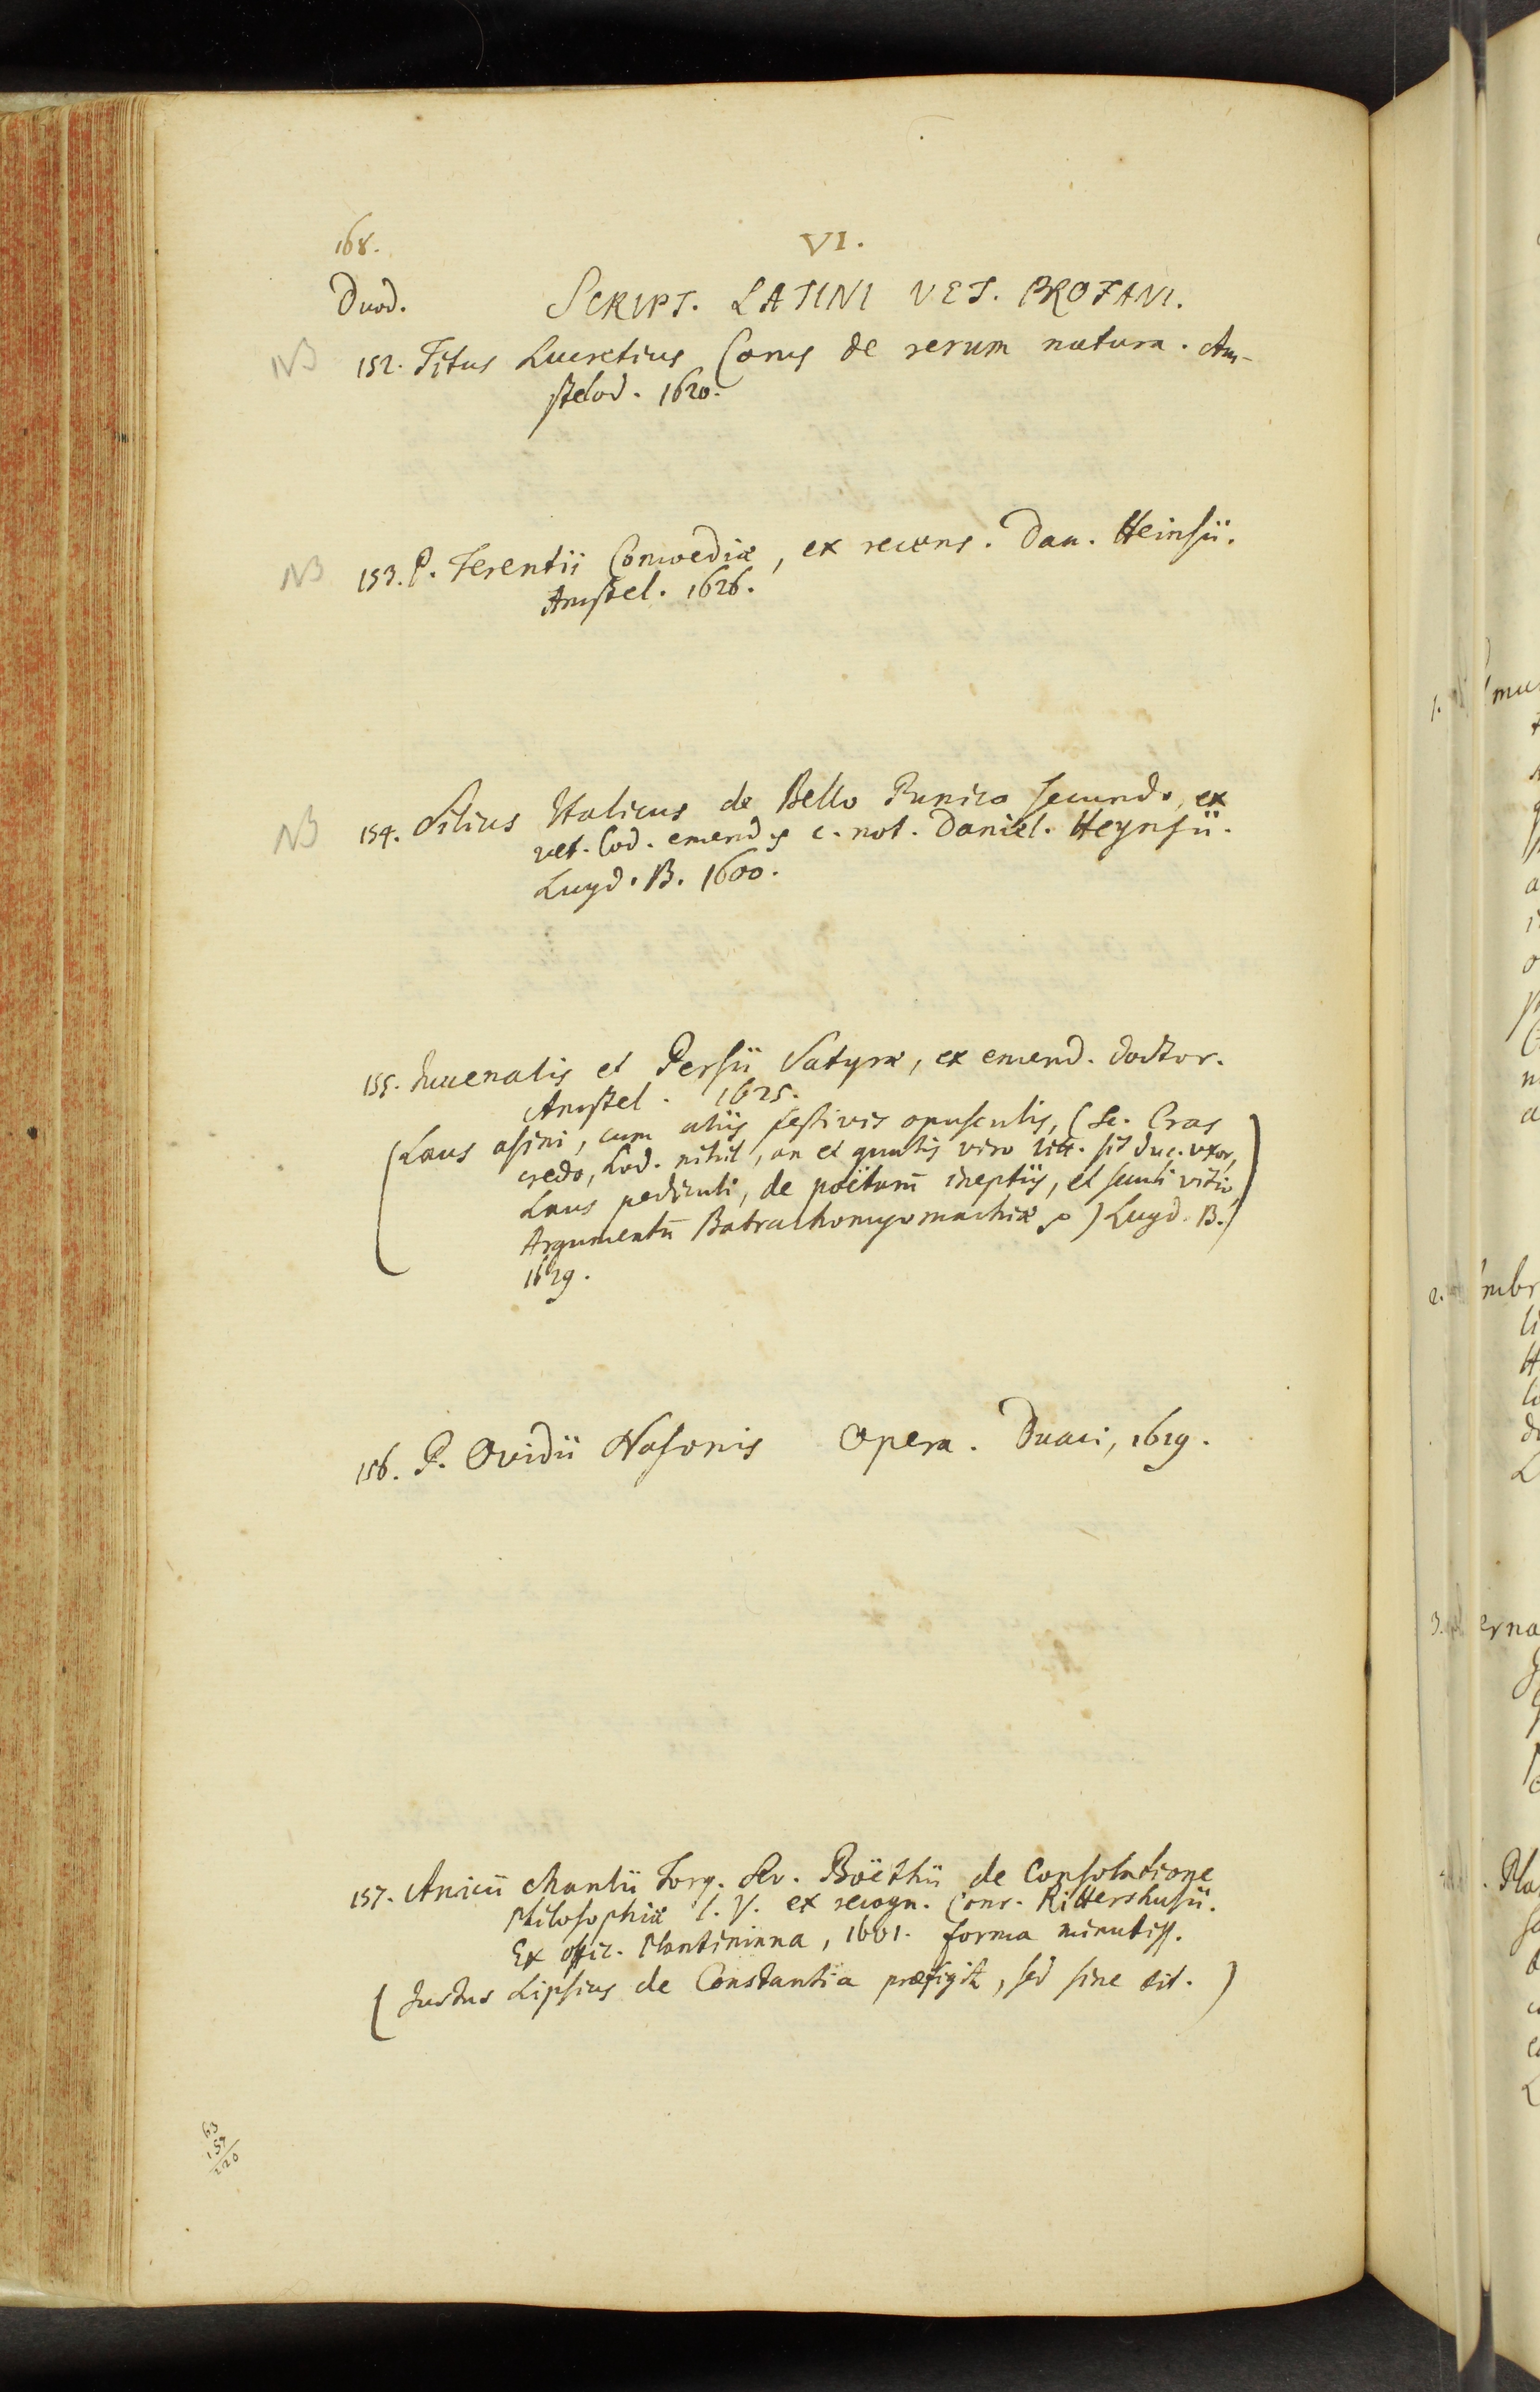 168.
VI.
Duod.
SCRIPT. LATINI VET. PROFANI.
NB 152. Titus Lucretius Carus de rerum natura. Am-
stelod. 1620.
NB 153. P. Terentii Comoediæ, ex recens. Dan. Heinsii.
Amstel. 1626.
NB 154. Silius Italicus de Bello Punico secundo, ex
vet. Cod. emend. c. not. Daniel. Heynsii.
Lugd. B. 1600.
155. Juuenalis et Persii Satyræ, ex emend. doctor.
Amstel. 1625.
(Laus asini, cum aliis festivis opusculis, (sc. Cras
credo, hod. nihil, an et qualis viro litt. sit duc. uxor,
Laus pediculi, de poëtarū ineptiis, et seculi vitio,
Argumentū Batrachomyomachiæ) Lugd. B.)
1629.
156. P. Ovidii Nasonis Opera. Duaci, 1619.
157. Anicii Manlii Torq. Sev. Boëthii de Consolatione
Philosophiæ l. V. ex recogn. Conr. Rittershusii.
Ex offic. Plantiniana, 1601. forma minutiss.
(Justus Lipsius de Constantia præfigit, sed sine tit.)
63
157
220